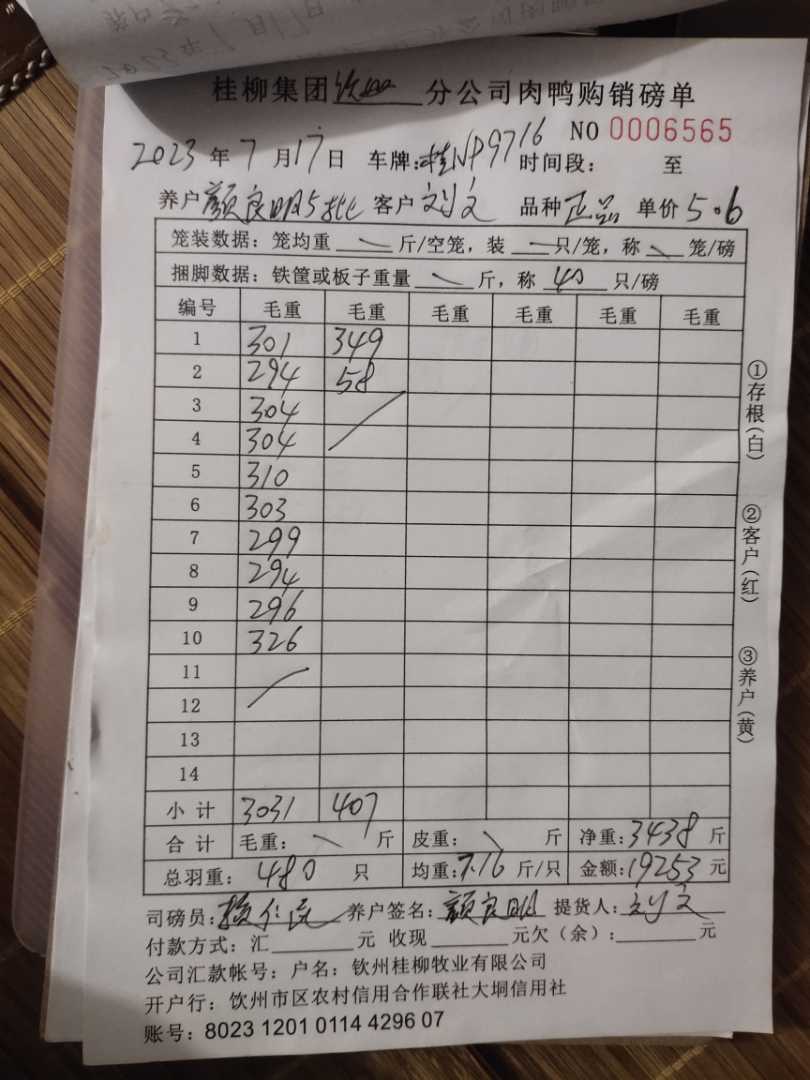 桂柳集团钦州分公司肉鸭购销磅单
NO 0006565
2023年7月17日 车牌:桂NP9716 时间段: 至
养户颜良明5批 客户刘文 品种正品 单价5.6
笼装数据:笼均重 斤/空笼,装 只/笼,称 笼/磅
捆脚数据:铁筐或板子重量 斤,称 40 只/磅
编号 毛重 毛重 毛重 毛重 毛重 毛重
1 301 349
2 294 58
3 304
4 304
5 310
6 303
7 299
8 294
9 296
10 326
11
12
13
14
小计 3031 407
合计 毛重: 斤 皮重: 斤 净重:3438斤
总羽重:480只 均重:7.16斤/只 金额:19253元
司磅员: 养户签名:颜良明 提货人:刘文
付款方式:汇 元 收现 元欠(余): 元
公司汇款帐号:户名:钦州桂柳牧业有限公司
开户行:饮州市区农村信用合作联社大垌信用社
账号:8023 1201 0114 4296 07
①存根(白)
②客户(红)
③养户(黄)